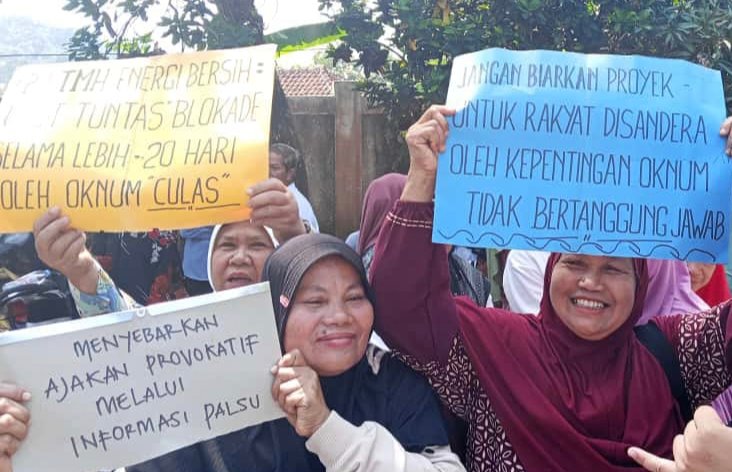 TMH ENERGI BERSIH =
TUNTAS" BLOKADE
SELAMA LEBIH - 20 HARI
OLEH OKNUM "CULAS"
JANGAN BIARKAN PROYEK -
UNTUK RAKYAT DISANDERA
OLEH KEPENTINGAN OKNUM
TIDAK BERTANGGUNG JAWAB
MENYEBARKAN
AJAKAN PROVOKATIF
MELALUI
INFORMASI PALSU